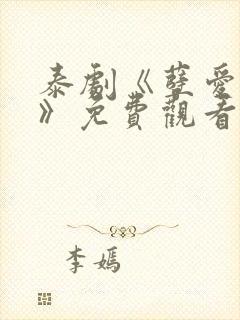 泰劇《孽愛
》免費觀看
李嫣